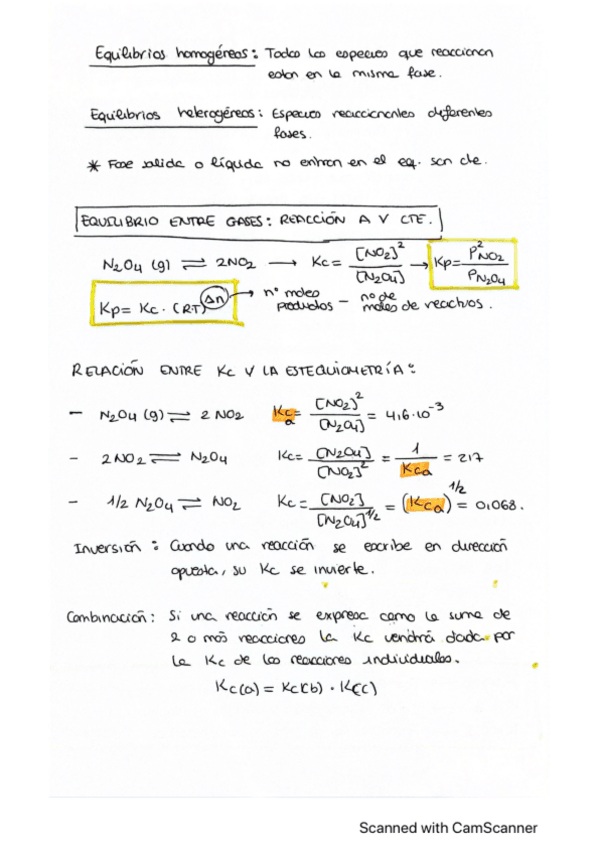 Equilibrios homogéreos: Todas las especies que reaccionan
estan en la misma fase.
Equilibrios heterogéreos: Especies reaccionantes diferentes
fases.
* Fase solida o líquida no entran en el eq. son cte.
EQUILIBRIO ENTRE GASES: REACCIÓN A V CTE.
N2O4 (g) ⇌ 2NO2 → Kc = [NO2]² / [N2O4] → Kp = P²NO2 / PN2O4
Kp = Kc · (RT)^Δn → nº moles productos − nº de moles de reactivos.
RELACIÓN ENTRE Kc Y LA ESTEQUIOMETRÍA:
– N2O4 (g) ⇌ 2 NO2 Kc a = [NO2]² / [N2O4] = 4,6·10⁻³
– 2NO2 ⇌ N2O4 Kc = [N2O4] / [NO2]² = 1 / Kca = 217
– 1/2 N2O4 ⇌ NO2 Kc = [NO2] / [N2O4]^1/2 = (Kca)^1/2 = 0,068.
Inversión: Cuando una reacción se escribe en dirección
opuesta, su Kc se invierte.
Combinación: Si una reacción se expresa como la suma de
2 o más reacciones la Kc vendrá dada por
la Kc de las reacciones individuales.
Kc(a) = Kc(b) · Kc(c)
Scanned with CamScanner